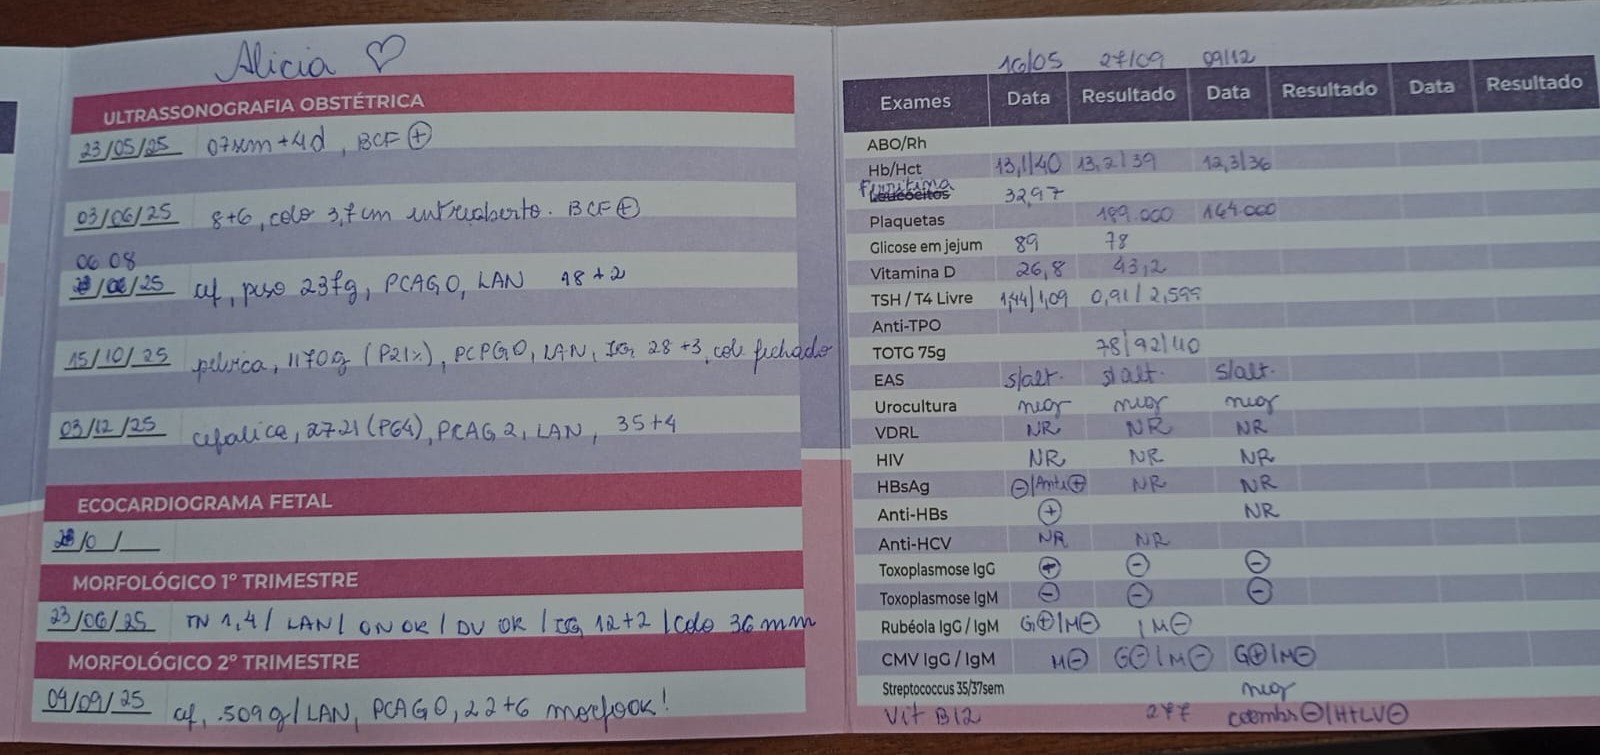 Alicia ♡
ULTRASSONOGRAFIA OBSTÉTRICA
23/05/25 07sem+4d, BCF ⊕
03/06/25 8+6, colo 3,7cm entreaberto. BCF ⊕
06 08
/25 cef, peso 237g, PCAG0, LAN 18+2
15/10/25 pelvica, 1170g (P21%), PCPG0, LAN, IG 28+3, colo fechado
03/12/25 cefalica, 2721 (P64), PCAG2, LAN, 35+4
ECOCARDIOGRAMA FETAL
MORFOLÓGICO 1º TRIMESTRE
23/06/25 TN 1,4/ LAN/ ON OK/ DV OK/ IG 12+2 /Colo 36mm
MORFOLÓGICO 2º TRIMESTRE
04/09/25 cef, 509g/LAN, PCAG0, 22+6 morfook!
16/05 27/09 09/12
Exames Data Resultado Data Resultado Data Resultado
ABO/Rh
Hb/Hct 13,1/40 13,2/39 12,3/36
Leucócitos 32,97
Plaquetas 189.000 164.000
Glicose em jejum 89 78
Vitamina D 26,8 43,2
TSH / T4 Livre 1,44/1,09 0,91/2,599
Anti-TPO
TOTG 75g 78/92/110
EAS s/alt. s/alt. s/alt.
Urocultura neg neg neg
VDRL NR NR NR
HIV NR NR NR
HBsAg ⊖/Anti⊕ NR NR
Anti-HBs ⊕ NR
Anti-HCV NR NR
Toxoplasmose IgG ⊕ ⊖ ⊖
Toxoplasmose IgM ⊖ ⊖ ⊖
Rubéola IgG / IgM G⊕/M⊖ /M⊖
CMV IgG / IgM M⊖ G⊖/M⊖ G⊕/M⊖
Streptococcus 35/37sem neg
Vit B12 277 coombs⊖/HTLV⊖